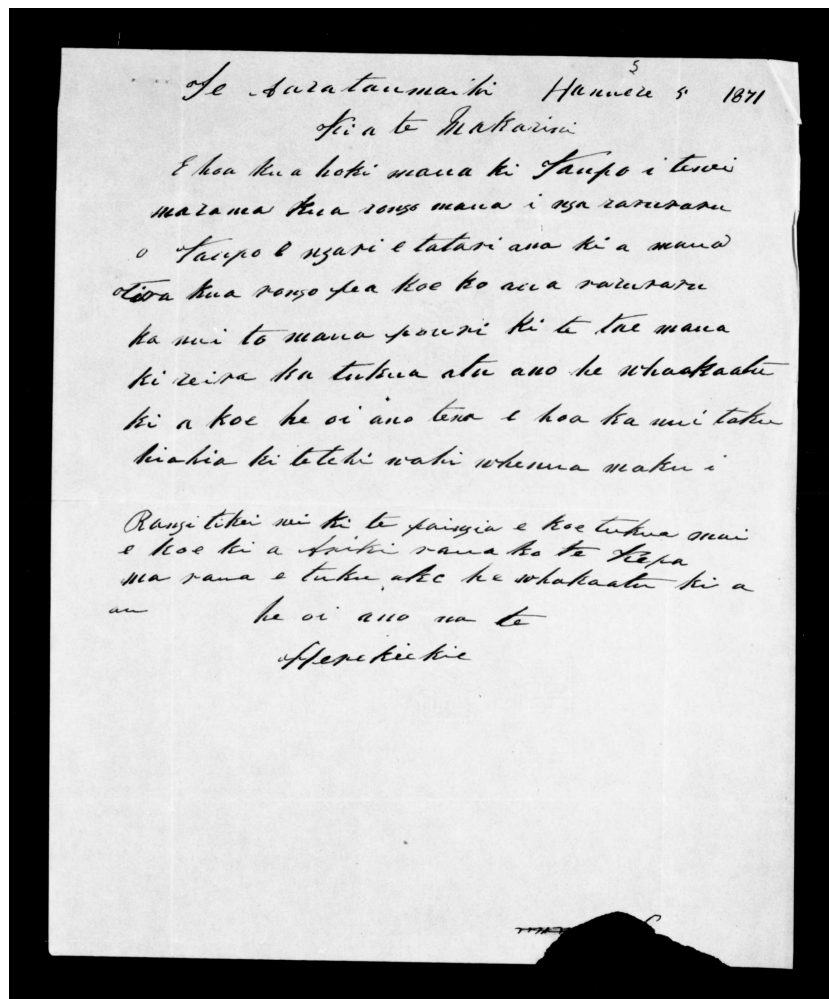 Te Aarataumaihi Hanuere 5 1871
Ki a te Makarini
E hoa kua hoki maua ki Taupo i tenei
marama kua rongo maua i nga raruraru
o Taupo E ngari e tatari ana ki a maua
Tera kua rongo pea koe ko aua raruraru
ka nui to maua pouri Ki te tae maua
ki reira ka tukua atu ano he whaakaatu
ki a koe he oi ano tena e hoa ka nui taku
hiahia ki tetehi wahi whenua maku i
Rangitikei nei ki te paingia e koe tukua mai
e koe ki a Ariki raua ko te Kepa
ma raua e tuku ake he whakaatu ki a
au he oi ano na te
Herekiekie